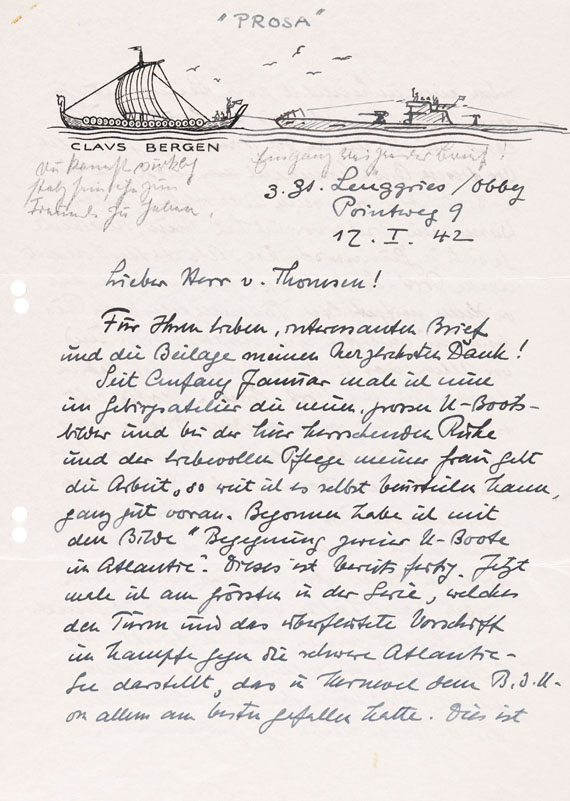 "PROSA"
CLAVS BERGEN
Freunde zu haben.
z. Zt. Lenggries / Obby
Pointweg 9
12. I. 42
Lieber Herr v. Thomsen!
Für Ihren lieben, interessanten Brief
und die Beilage meinen herzlichsten Dank!
Seit Anfang Januar male ich nun
im Gebirgsatelier die neuen, grossen U-Boots-
bilder und bei der hier herrschenden Ruhe
und der liebevollen Pflege meiner Frau geht
die Arbeit, so weit ich es selbst beurteilen kann,
ganz gut voran. Begonnen habe ich mit
dem Bilde "Begegnung zweier U-Boote
im Atlantic". Dieses ist bereits fertig. Jetzt
male ich am grössten in der Serie, welches
den Turm und das überflutete Vorschiff
im Kampfe gegen die schwere Atlantic-
See darstellt, das in Kernevel dem B.d.U.
vor allem am besten gefallen hatte. Dies ist